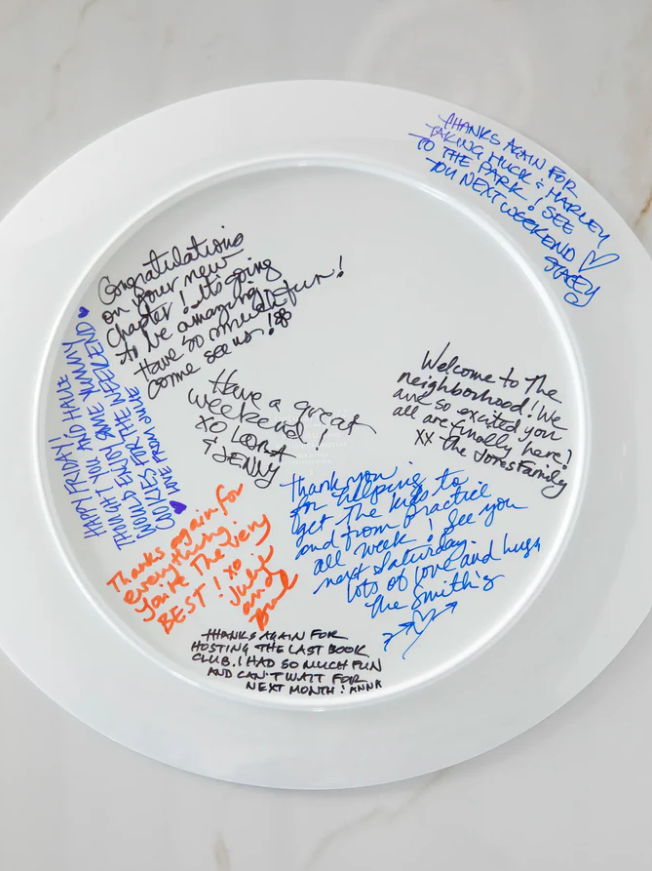 THANKS AGAIN FOR
TAKING HUCK & HARLEY
TO THE PARK! SEE
YOU NEXT WEEKEND ♡
STACEY
Congratulations
on your new
chapter! It's going
to be amazing!
Have so much fun!
come see us!
HAPPY FRIDAY!
THOUGHT YOU AND HALLE
WOULD ENJOY SOME YUMMY
COOKIES FOR THE WEEKEND
LOVE FROM
Have a great
weekend!
XO LOONA
& JENNY
Welcome to the
neighborhood! We
are so excited you
all are finally here!
XX the Jones Family
Thank you
for helping to
get the kids to
and from practice
all week! See you
next Saturday.
lots of love and hugs
the Smith's
Thanks again for
everything.
You're the very
BEST! XO
Julie
and
THANKS AGAIN FOR
HOSTING THE LAST BOOK
CLUB. I HAD SO MUCH FUN
AND CAN'T WAIT FOR
NEXT MONTH! ANNA